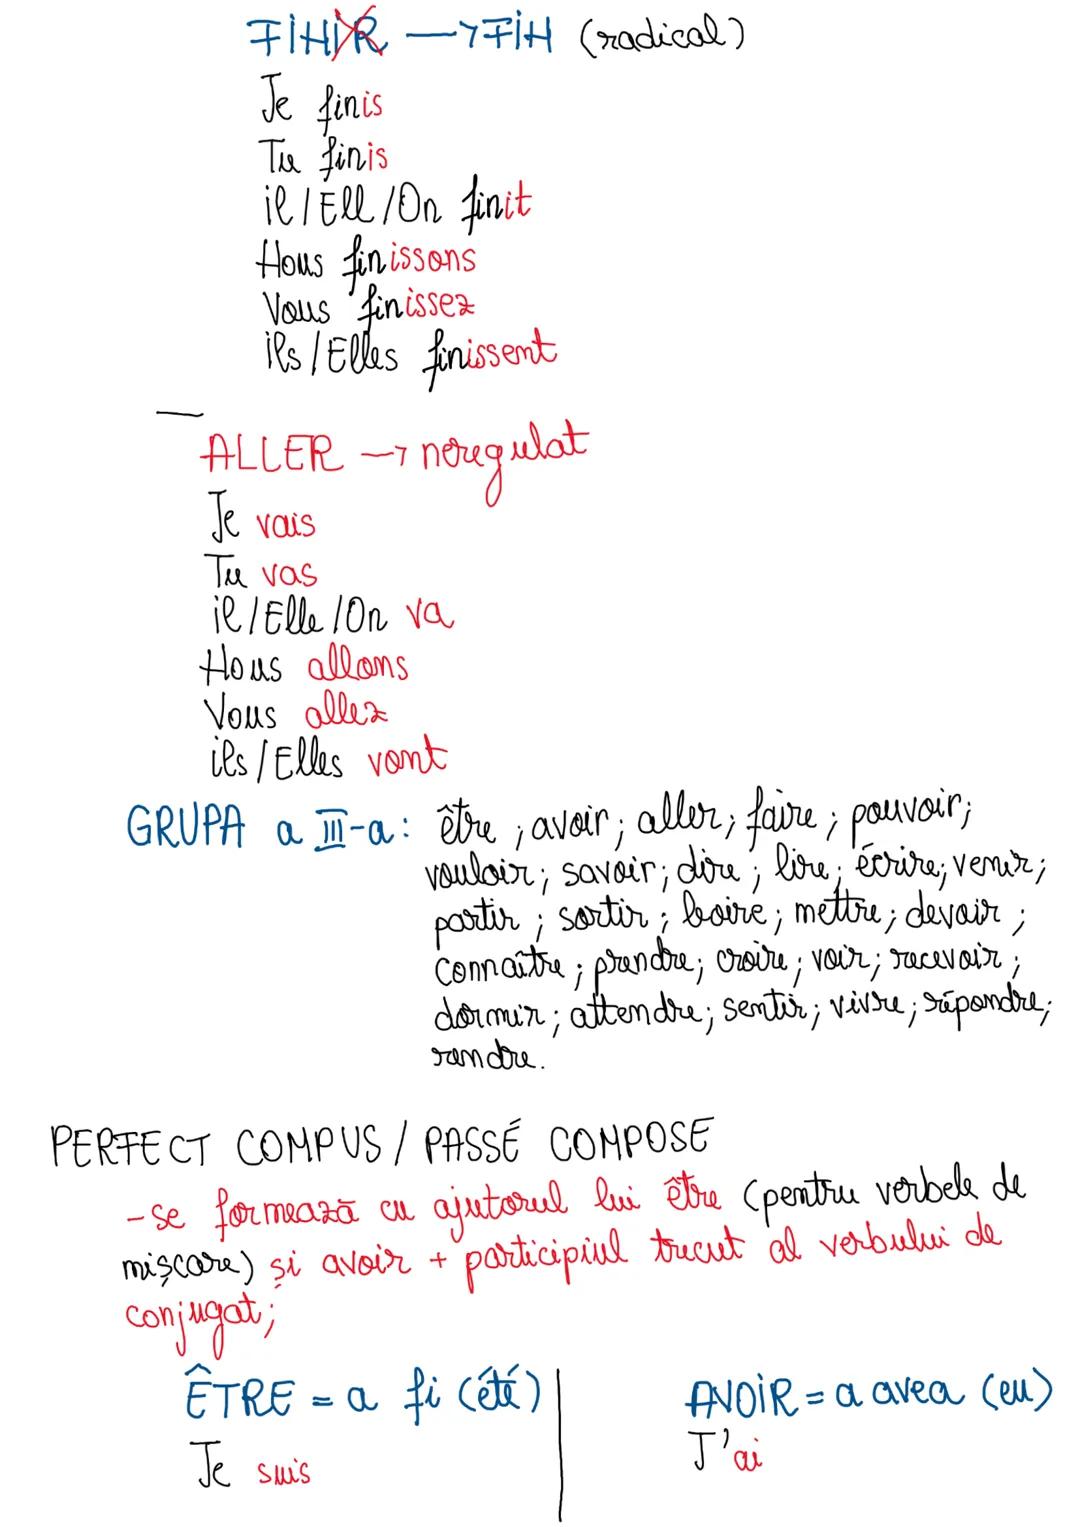 FINIR → FIN (radical)
Je finis
Tu finis
il / Ell / On finit
Nous finissons
Vous finissez
ils / Elles finissent
ALLER → neregulat
Je vais
Tu vas
il / Elle / On va
Nous allons
Vous allez
ils / Elles vont
GRUPA a III-a: être ; avoir ; aller ; faire ; pouvoir ;
vouloir ; savoir ; dire ; lire ; écrire ; venir ;
partir ; sortir ; boire ; mettre ; devoir ;
connaître ; prendre ; croire ; voir ; recevoir ;
dormir ; attendre ; sentir ; vivre ; répondre ;
rendre.
PERFECT COMPUS / PASSÉ COMPOSE
- se formează cu ajutorul lui être (pentru verbele de
mișcare) și avoir + participiul trecut al verbului de
conjugat ;
ÊTRE = a fi (été)
Je suis
AVOIR = a avea (eu)
J'ai